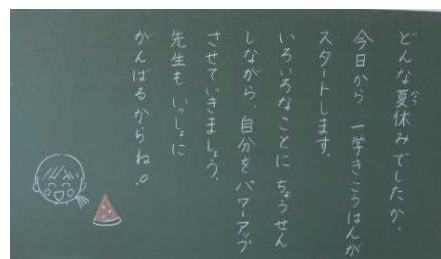 どんな夏休みでしたか。
今日から 一学きこうはんが
スタートします。
いろいろなことに ちょうせん
しながら、自分を パワーアップ
させていきましょう。
先生も いっしょに
がんばるからね!